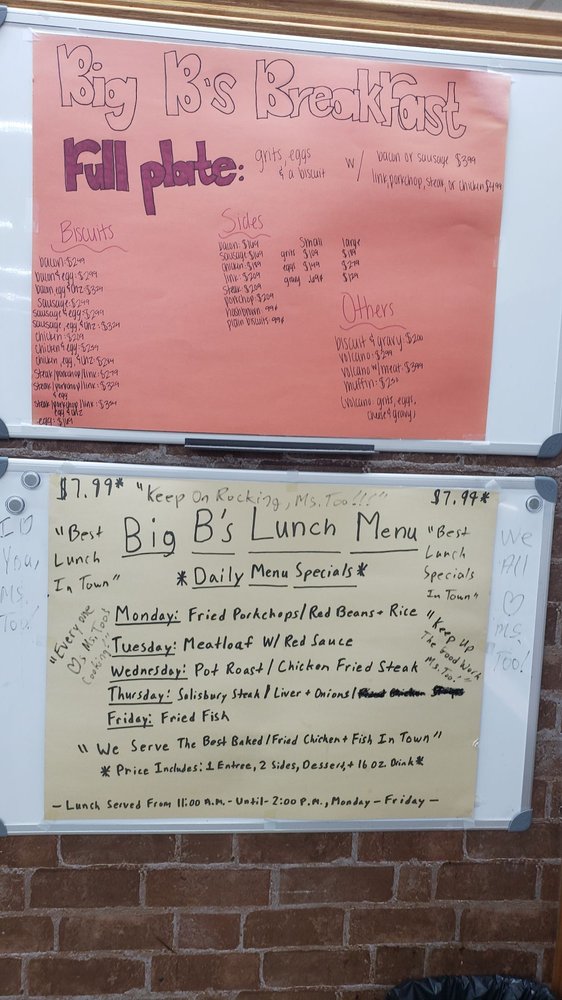 Big B's Breakfast
Full plate: grits, eggs & a biscuit w/ bacon or sausage $3.99
link, porkchop, steak, or chicken $4.99
Biscuits
bacon: $2.49
bacon & egg: $2.99
bacon, egg & chz: $3.24
sausage: $2.49
sausage & egg: $2.99
sausage, egg, & chz: $3.24
chicken:
chicken & egg:
chicken, egg, & chz:
steak/porkchop/link: $2.79
steak/porkchop/link: $3.29
& egg
steak/porkchop/link:
egg & chz
egg:
Sides
bacon: $1.69
sausage: $1.69
chicken: $1.89
link: $2.09
steak: $2.09
porkchop: $2.09
hashbrown: 99¢
plain biscuit: 99¢
small large
grits $1.09
eggs $1.49
gravy $1.29
Others
biscuit & gravy: $2.00
volcano: $2.99
volcano w/meat: $3.99
muffin: $2.50
(volcano: grits, eggs,
cheese & gravy)
$7.99* "Keep On Rocking, Ms. Too!!!" $7.99*
Big B's Lunch Menu
"Best
Lunch
In Town"
"Best
Lunch
Specials
In Town"
*Daily Menu Specials*
"Everyone
♡ Ms. Toos
Cooking!"
"Keep Up
The Good Work
Ms. Too!"
Monday: Fried Porkchops/Red Beans + Rice
Tuesday: Meatloaf W/ Red Sauce
Wednesday: Pot Roast/Chicken Fried Steak
Thursday: Salisbury Steak/Liver + Onions/
Friday: Fried Fish
"We Serve The Best Baked/Fried Chicken + Fish In Town"
*Price Includes: 1 Entree, 2 Sides, Dessert, + 16 oz. Drink*
-Lunch Served From 11:00 A.M. - Until - 2:00 P.M., Monday - Friday-
I ♡
You,
Ms.
Too!
We
All
♡
Ms.
Too!